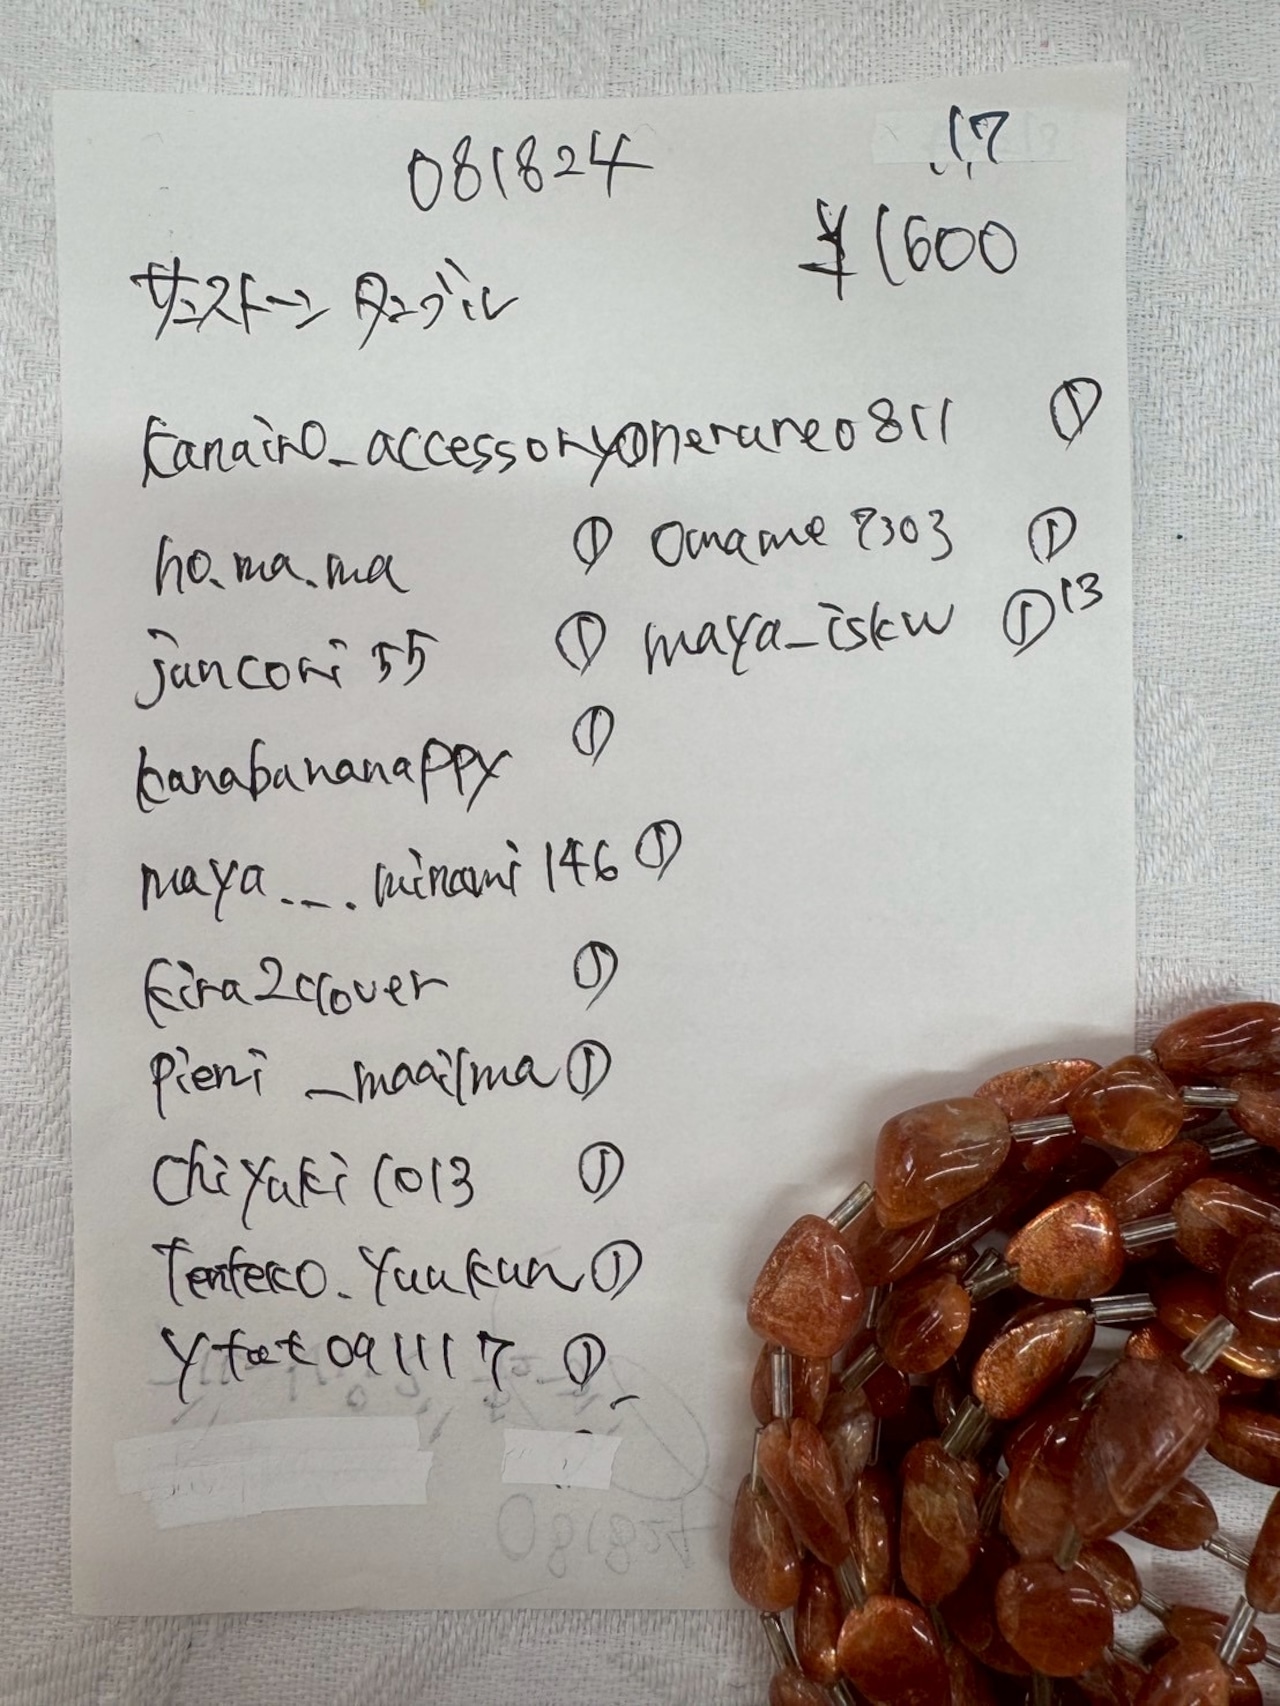 081824
17
¥1600
サンストーン タンブル
kanairo_accessory① nerureo811 ①
ho.ma.ma ① oname7303 ①
juncori55 ① maya_iskw ① 13
kanabananappy ①
maya_._. minami146 ①
kira2clover ①
pieni_maailma ①
chiyuki1013 ①
Tenteko.yuukun ①
ytat091117 ①